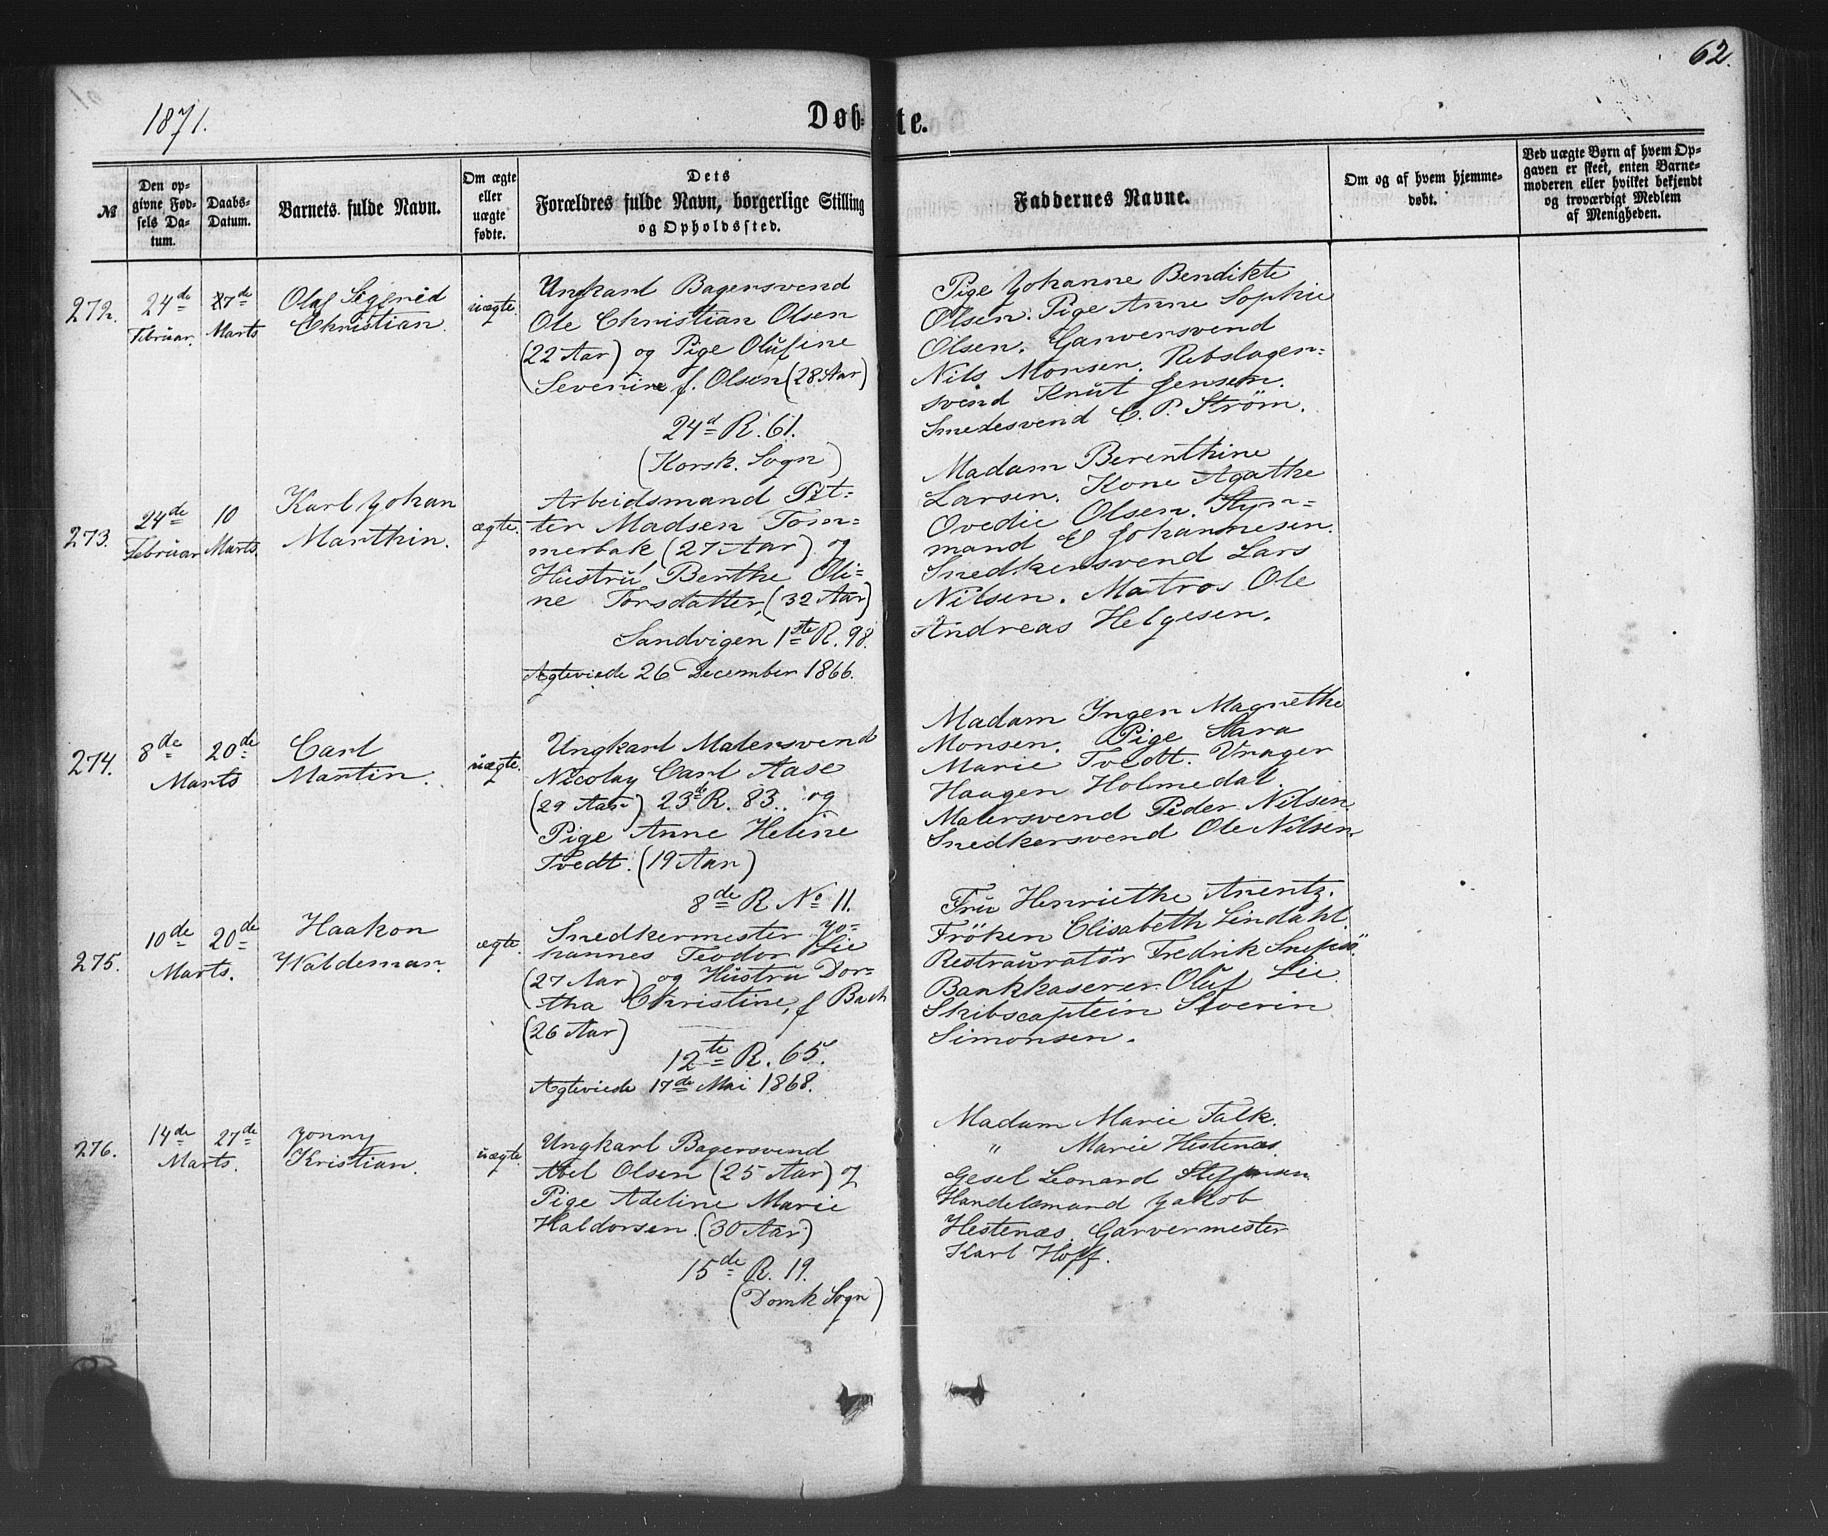 62.
1871.
Døb-te.
№
Den opgivne Fødsels Datum.
Daabs-Datum.
Barnets fulde Navn.
Om ægte eller uægte fødte.
Dets Forældres fulde Navn, borgerlige Stilling og Opholdssted.
Faddernes Navne.
Om og af hvem hjemmedøbt.
Ved uægte Børn af hvem Opgaven er skeet, enten Barnemoderen eller hvilket bekjendt og troværdigt Medlem af Menigheden.
272.
24de Februar.
7de Marts
Olaf Sigfried
Christian.
uægte.
Ungkarl Bagersvend
Ole Christian Olsen
(22 Aar) og Pige Olufine
Severine f. Olsen (28 Aar)
24d R. 61.
(Korsk. Sogn)
Pige Johanne Bendikte
Olsen. Pige Anne Sophie
Olsen. Garversvend
Nils Monsen. Rebslager-
svend Knut Jensen.
Smedesvend C. P. Strøm.
273.
24de Februar
10 Marts.
Karl Johan
Marthin.
ægte.
Arbeidsmand Pit-
ter Madsen Tom-
merbak (27 Aar) og
Hustru, Berthe Oli-
ne Torsdatter, (32 Aar)
Sandvigen 1ste R. 98.
Ægteviede 26 December 1866.
Madam Berenthine
Larsen. Kone Agathe
Ovedie Olsen. Styr-
mand E Johannesen.
Snedkersvend Lars
Nilsen. Matros Ole
Andreas Helgesen.
274.
8de
20de
Marts
Carl
Martin.
uægte.
Ungkarl Malersvend
Nicolay Carl Aase
(29 Aar) 23de R. 83. og
Pige Anne Heline
Tvedt. (19 Aar)
8de R No 11.
Madam Inger Magrethe
Monsen. Pige Sara
Marie Tvedt. Vrager
Haagen Holmedal
Malersvend Peder Nilsen.
Snedkersvend Ole Nilsen.
275.
10de
20de
Marts.
Haakon
Waldemar.
ægte.
Snedkermester Jo-
hannes Teodor Lie
(27 Aar) og Hustru Dor-
tha Christine, f Bach
(26 Aar)
12te R. 65.
Ægteviede 17de Mai 1868.
Fru Henriethe Arentz.
Fröken Elisabeth Lindahl.
Restauratør Fredrik
Bankkaserer Oluf Lie.
Skibscaptein Severin
Simonsen.
276.
14de
27de
Marts.
Jonny
Kristian.
uægte.
Ungkarl Bagersvend
Axel Olsen (25 Aar) og
Pige Adeline Marie
Haldorsen. (30 Aar)
15de R. 19.
(Domk Sogn)
Madam Marie Falk.
" Marie Hestenæs
Gesel Leonard Steffensen.
Handelsmand Jakob
Hestenæs. Garvermester
Karl Hoff.